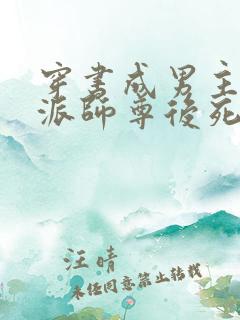 穿书成男主
派師尊後死
汪晴
未经同意禁止转载